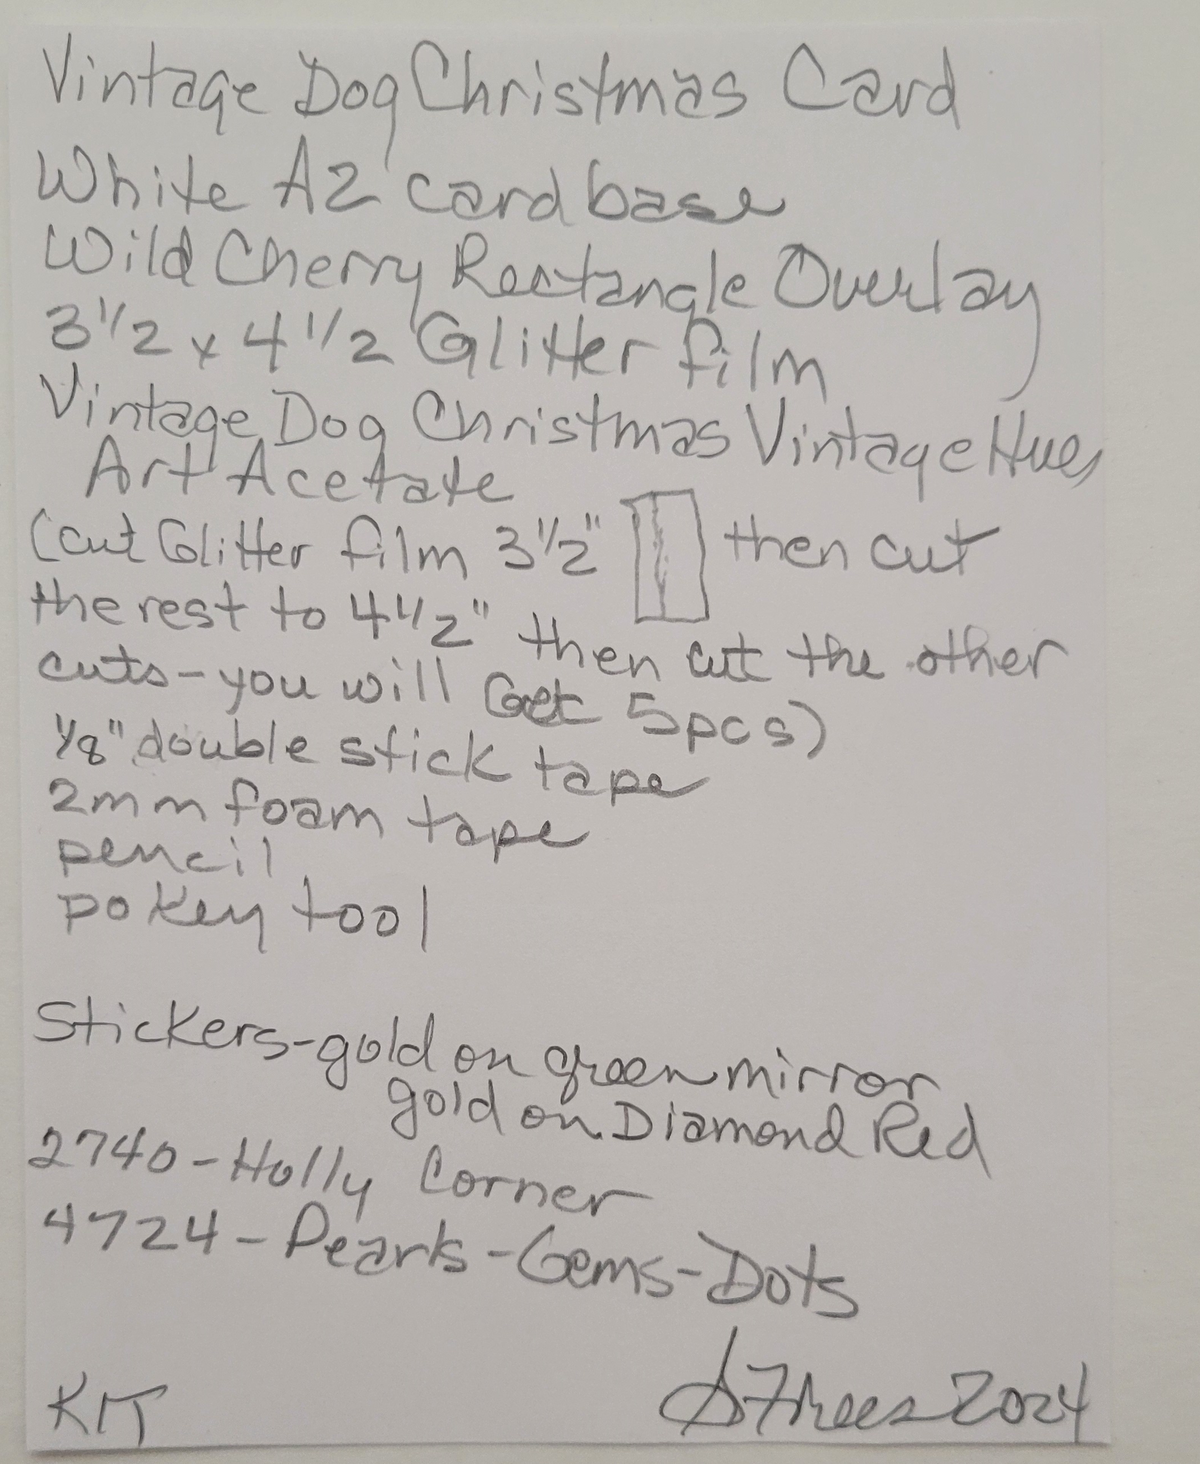 Vintage Dog Christmas Card
White A2 card base
Wild Cherry Rectangle Overlay
3 1/2 x 4 1/2 Glitter film
Vintage Dog Christmas Vintage Hues
Art Acetate
(cut Glitter film 3 1/2" then cut
the rest to 4 1/2" then cut the other
cuts - you will Get 5pcs)
1/8" double stick tape
2mm foam tape
pencil
pokey tool
Stickers - gold on green mirror
gold on Diamond Red
2740 - Holly Corner
4724 - Pearls - Gems - Dots
KIT
2024